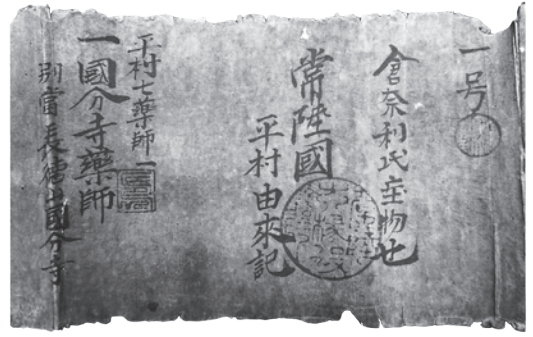 一号
倉奈利氏宝物也
常陸國
平村由來記
平村七藥師一
一國分寺藥師
別當長 山國分寺